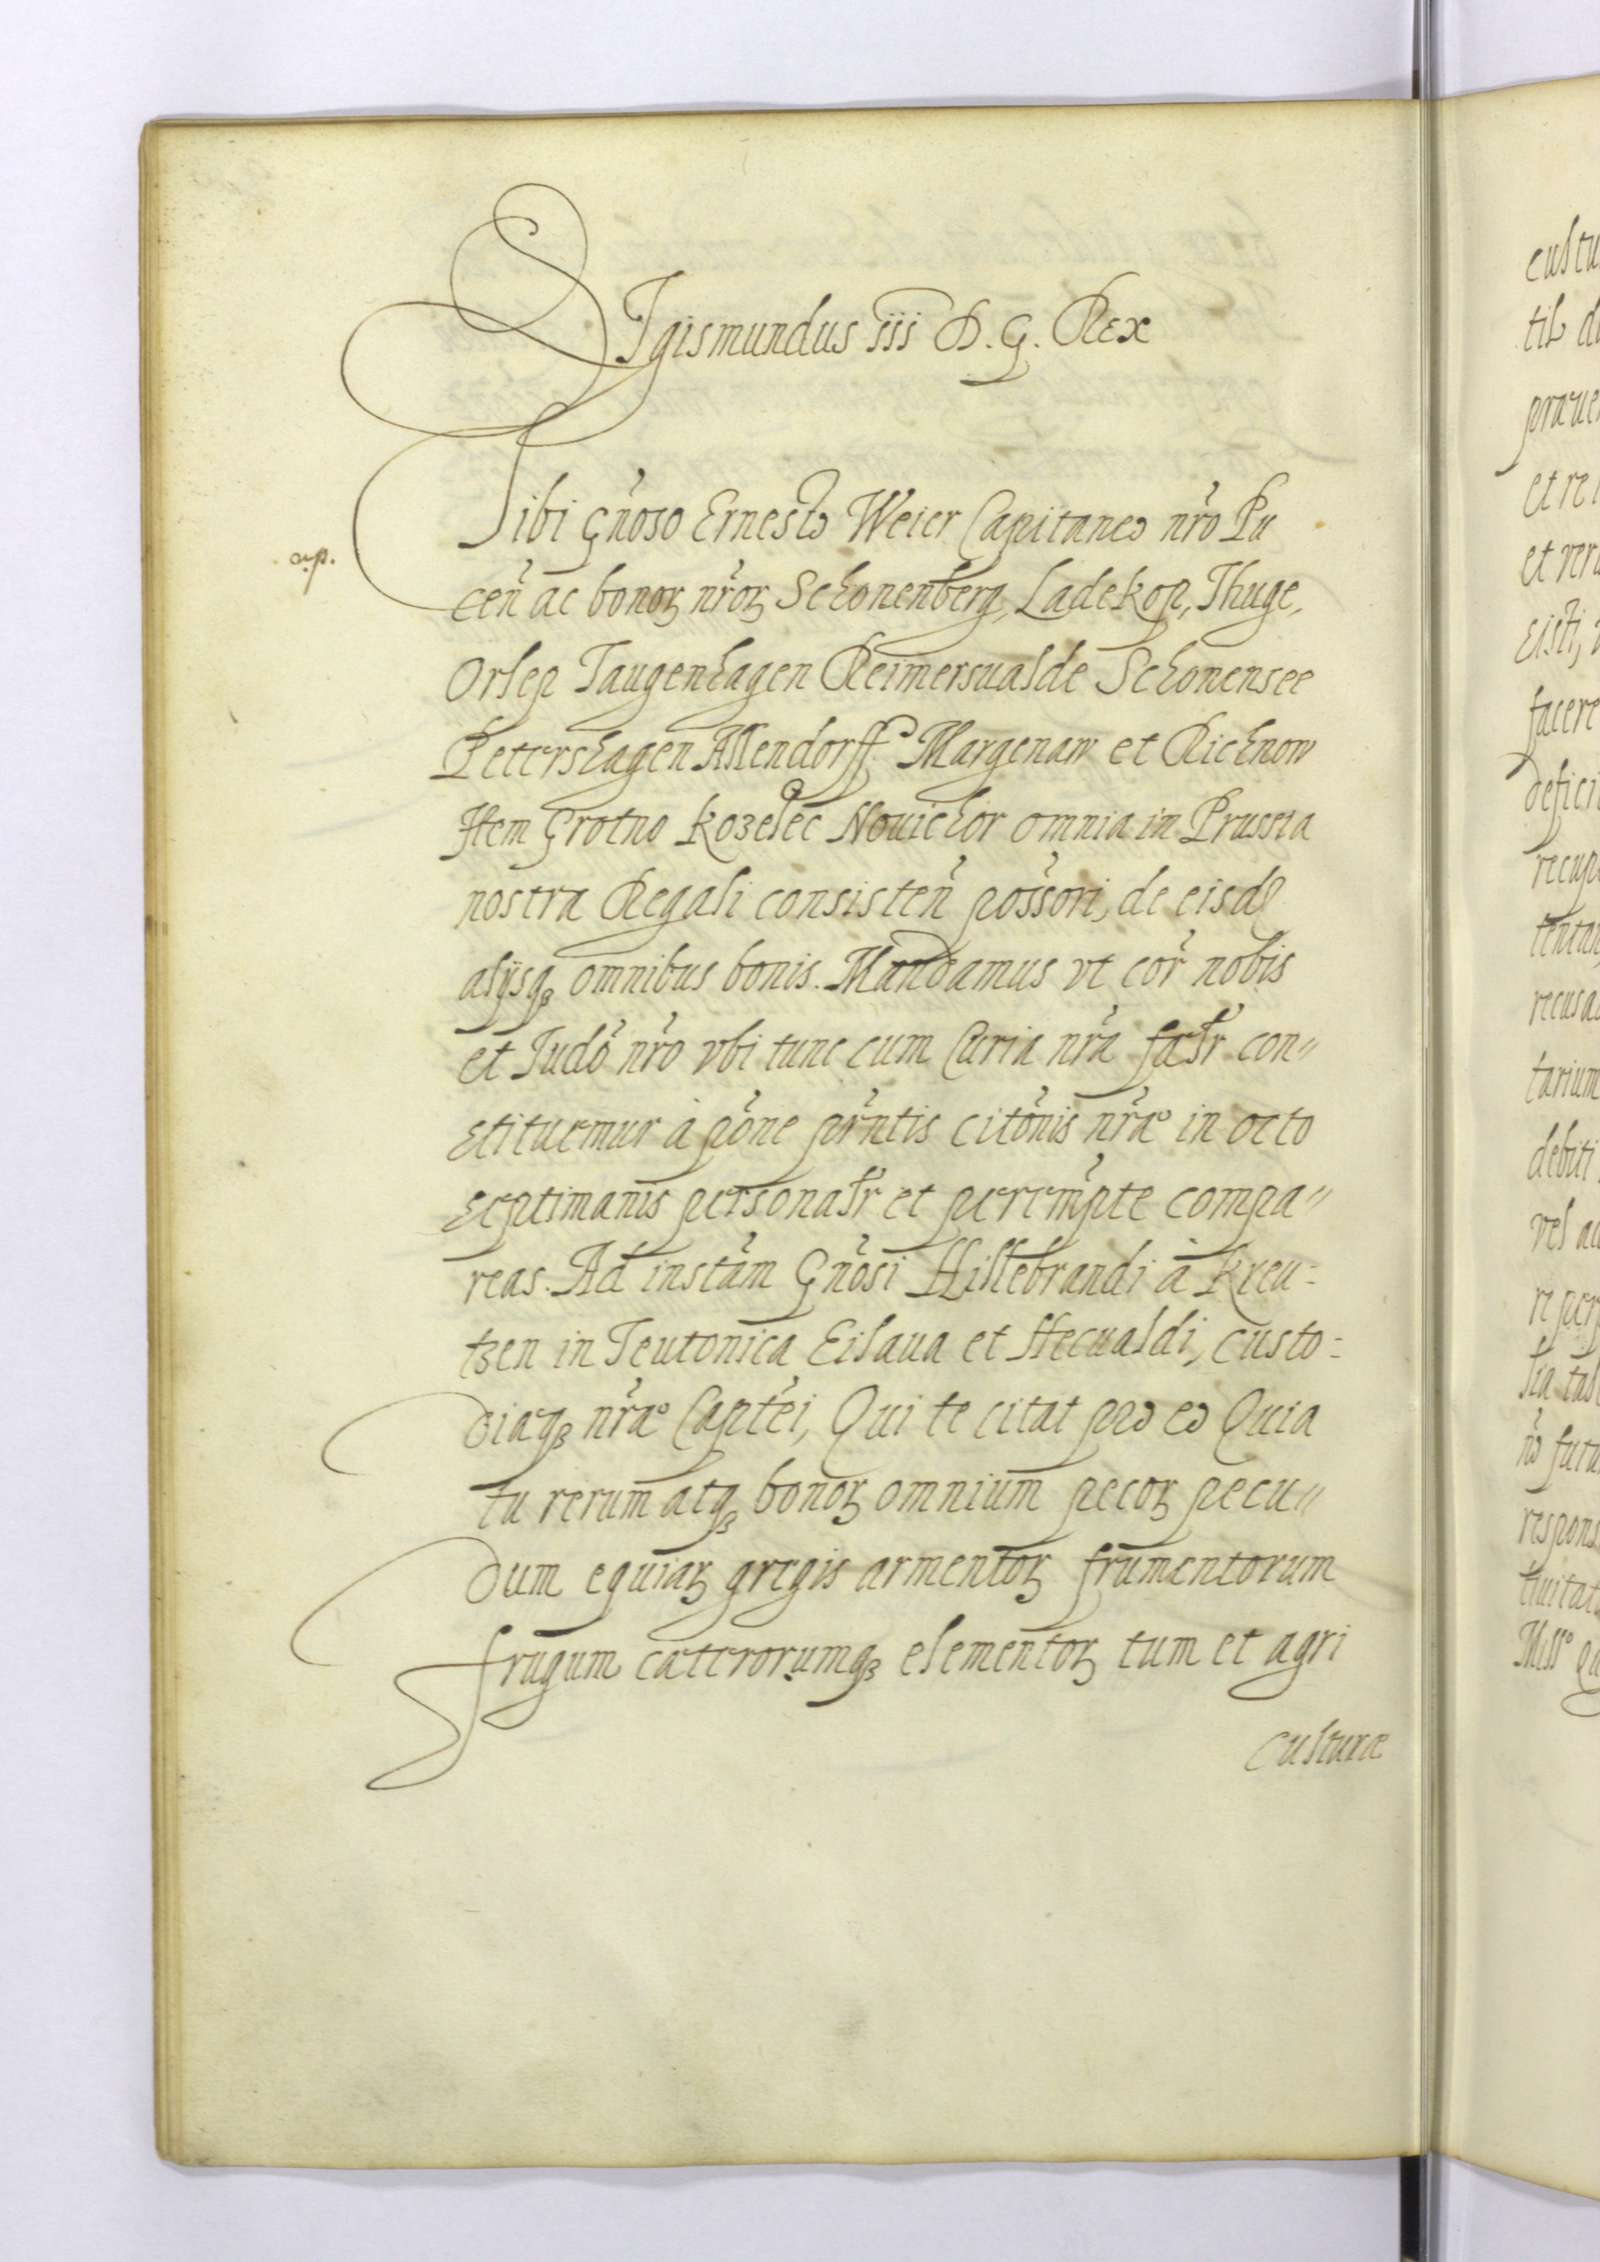 Sigismundus iii D. G. Rex
Tibi Gñoso Ernesto Weier Capitaneo nr̃o Pu
ceñ ac bonoꝝ nr̃oꝝ Schonenberg, Ladekop, Thuge,
Orlep Taugenhagen Reimersualde Schonensee
Petershagen Allendorff Margenaw et Richnow
Item Grotno Kozelec Nouichor omnia in Prussia
nostra Regali consisteñ possori, de eisd
alijsqꝫ omnibus bonis. Mandamus vt cor̃ nobis
et Judõ nr̃o vbi tunc cum Curia nr̃a falr con„
stituemur à põne pr̃ntis citõnis nr̃æ in octo
septimanis personalr et peremp̃te compa„
reas. Ad instãm Gñosi Hillebrandi à Kreu:
tzen in Teutonica Eilaua et Hecualdi, custo:
diaqꝫ nr̃æ Captei, Qui te citat pro eo Quia
tu rerum atqꝫ bonoꝝ omnium pecoꝝ pecu„
dum equiaꝝ gregis armentoꝝ frumentorum
frugum cæterorumqꝫ elementoꝝ tum et agri
culturæ
cultu
til
et re
et veru
facere
recusa
tarium
debiti
vel
respons